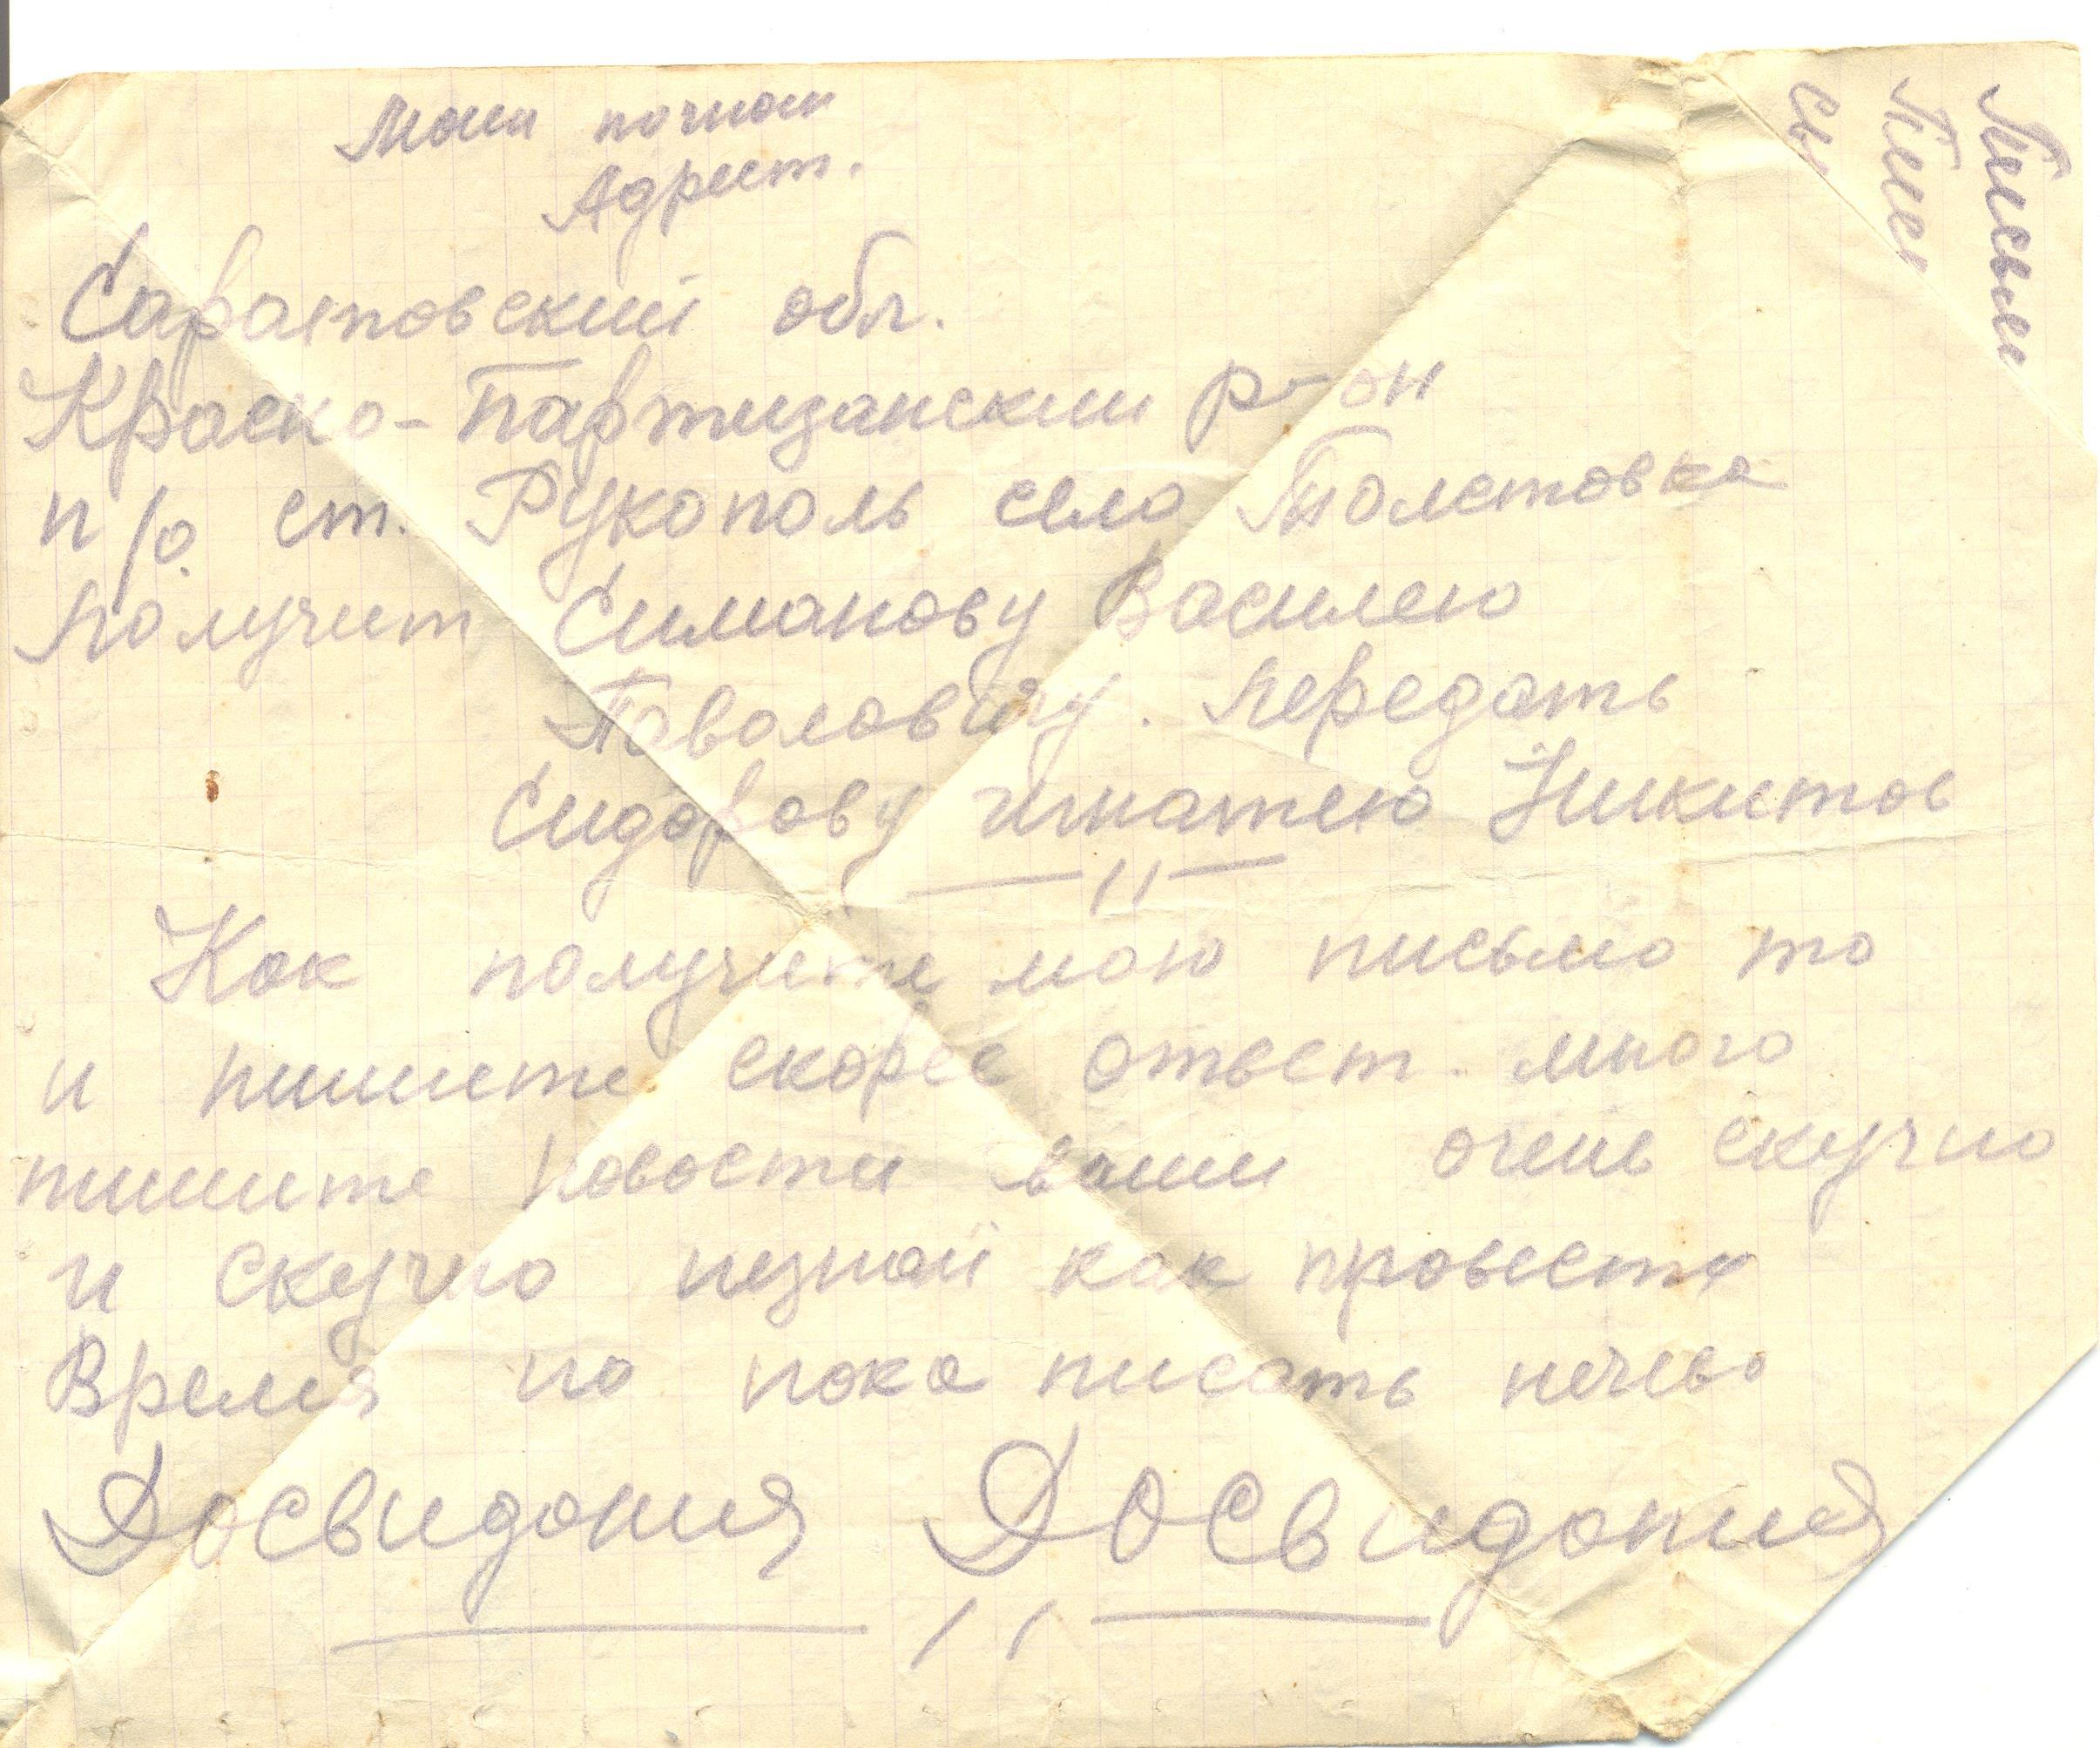 Мой почнои
Адрест.
Саратовский обл.
Красно-Партизанскии р-он
п/о. ст. Рукополь село Толстовка
получит Симанову Василею
Паваловичу. передать
Сидорову Игнатею Никитов
Как получите мою письмо то
и пишите скорее ответ. много
пишите новости ваши очень скучно
и скучно незнай как провести
Время но пока писать нечево
Досвидония Досвидония